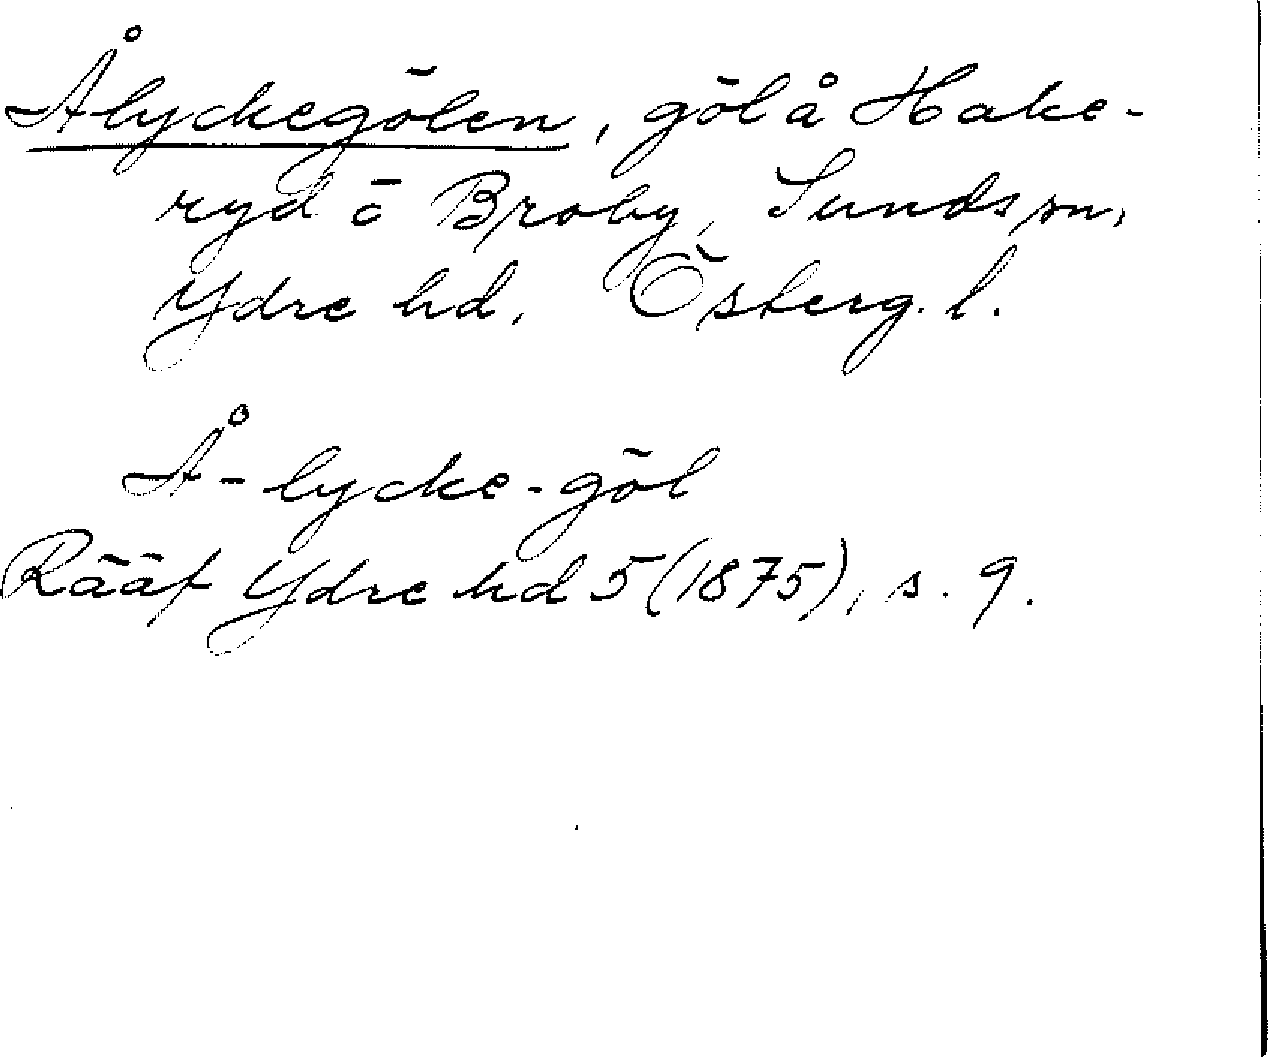 Ålyckegölen, göl å Hake-
ryd ö Broby, Sunds sn,
Ydre hd. Österg. l.
Å-lycke-göl
Rääf Ydre hd 5 (1875), s. 9.